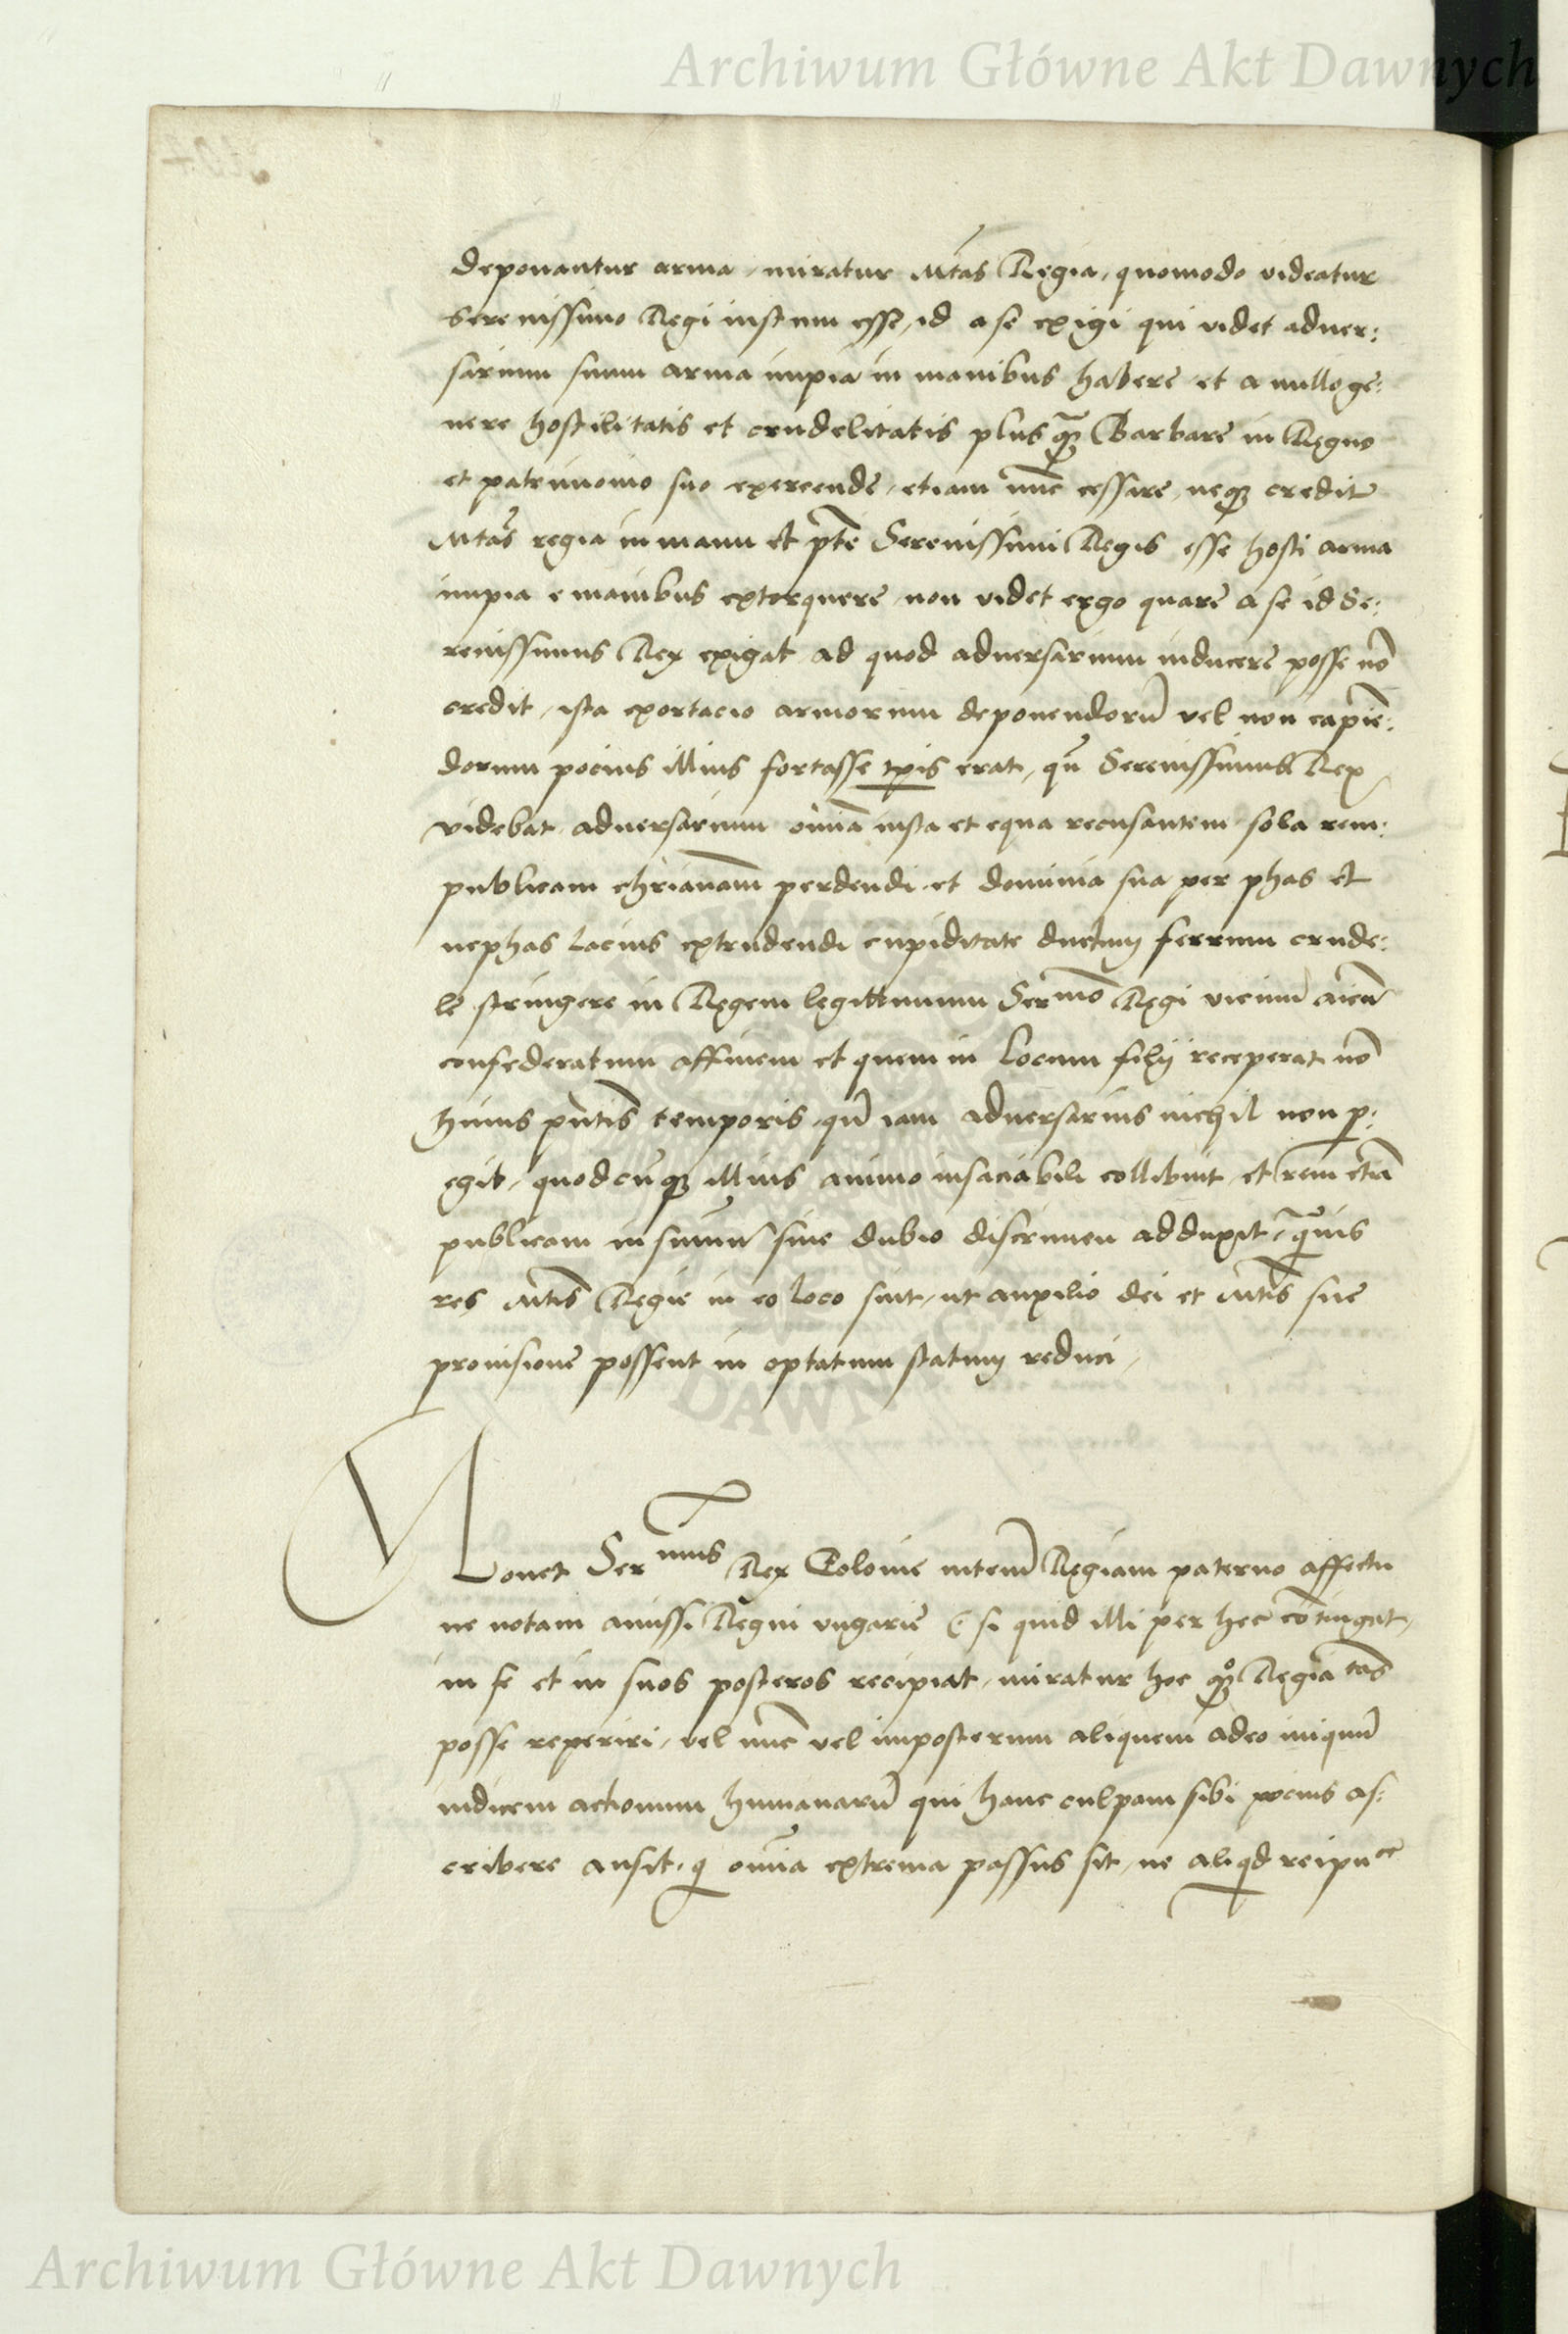 Archiwum Główne Akt Dawnych
deponantur arma, miratur Mtas Regia, quomodo videatur
Serenissimo Regi iustum esse, id a se exigi qui videt aduer:
sarium suum arma impia in manibus habere et a nullo ge:
nere hostilitatis et crudelitatis plusqꝫ Barbare in Regno
et patrimonio suo exercende, etiam nūc cessare, neqꝫ credit
Mtas regia in manu et ptte Serenissimi Regis esse hosti arma
impia e manibus extorquere, non videt ergo quare a se id Se:
renissimus Rex exigat ad quod aduersarium inducere posse nō
credit, ista exortacio armorum deponendorū vel non capiē:
dorum pocius illius fortasse tp̄is erat, qn̄ Serenissimus Rex
videbat aduersarium om̄ia iusta et equa recusantem sola rem:
publicam chrianam perdendi et dominia sua per phas et
nephas lacius extrudendi cupiditate ductum ferrum crude:
le stringere in Regem legittimum Sermo Regi vicinū aicū
confederatum affinem et quem in Locum filij receperat nō
huius pn̄tis temporis, qn̄ iam aduersarius nichil non p:
egit, quodcūqꝫ illius animo insaciabili collibuit, et rem etiā
publicam in sum̄ū sine dubio discrimen adduxit, qͣuis
res Mtis Regie in eo loco sint, ut auxilio dei et Mtis sue
prouisione possent in optatum statum reduci,
Monet Sermus Rex Polonie mtem Regiam paterno affectu
ne notam amissi Regni vngarie (: si quid illi per hec cōtingat,
in se et in suos posteros recipiat, miratur hoc qꝫ Regia tas
posse reperiri, vel nūc vel imposterum aliquem adeo iniquū
iudicem actionum humanarū qui hanc culpam sibi pocius as:
cribere ausit, q om̄ia extrema passus sit, ne aliqd reipuce
Archiwum Główne Akt Dawnych